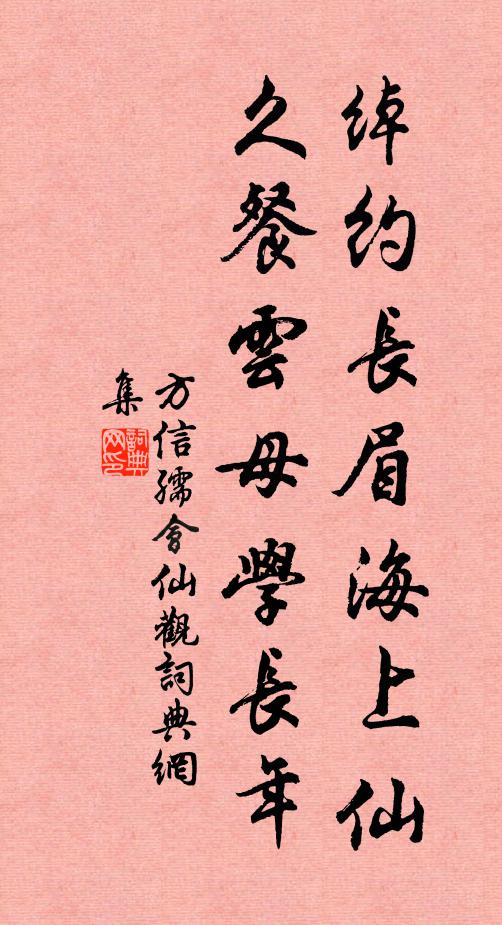 綽約長眉海上仙
久餐雲母學長年
方信孺會仙觀詞典網
集
詞典
网印